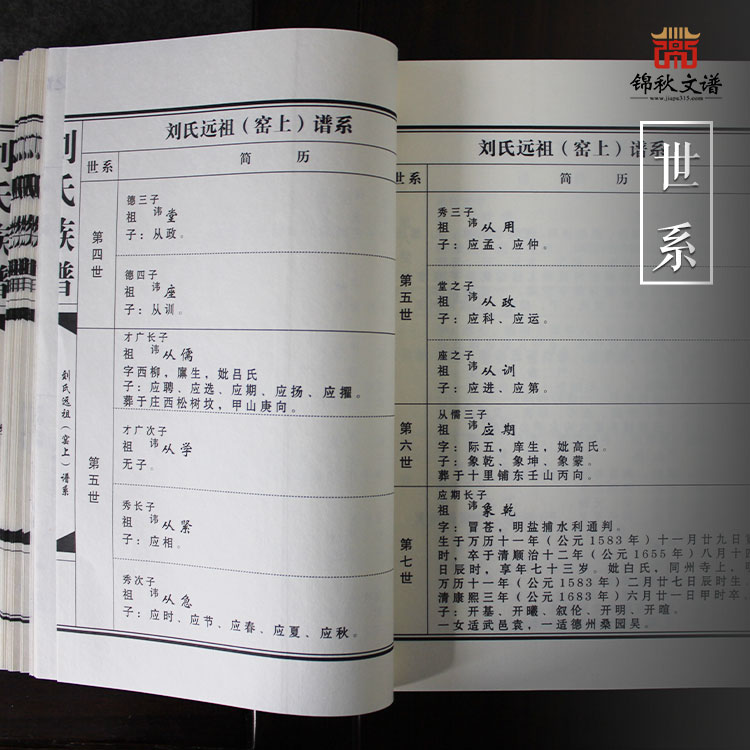 锦秋文谱
www.jiapu315.com
世系
刘氏族谱
刘氏远祖（窑上）谱系
刘氏远祖（窑上）谱系
世系
简 历
第四世
德三子
祖 讳 堂
子：从政。
德四子
祖 讳 座
子：从训。
第五世
才广长子
祖 讳 从儒
字西柳，廪生，妣吕氏
子：应聘、应选、应期、应扬、应擢。
葬于庄西松树坟，甲山庚向。
才广次子
祖 讳 从学
无子。
秀长子
祖 讳 从紧
子：应相。
秀次子
祖 讳 从急
子：应时、应节、应春、应夏、应秋。
刘氏远祖（窑上）谱系
世系
简 历
第五世
秀三子
祖 讳 从用
子：应孟、应仲。
堂之子
祖 讳 从政
子：应科、应运。
座之子
祖 讳 从训
子：应进、应第。
第六世
从儒三子
祖 讳 应期
字：际五，庠生，妣高氏。
子：象乾、象坤、象蒙。
葬于十里铺东壬山丙向。
第七世
应期长子
祖 讳 象乾
字：冒苍，明盐捕水利通判。
生于万历十一年（公元1583年）十一月廿九日
时，卒于清顺治十二年（公元1655年）八月十四
日辰时，享年七十三岁。妣白氏，同州寺上，
万历十一年（公元1583年）二月廿七日辰时生，
清康熙三年（公元1683年）六月廿一日甲时卒，
子：开基、开曦、叙伦、开明、开暄。
一女适武邑袁，一适德州桑园吴。